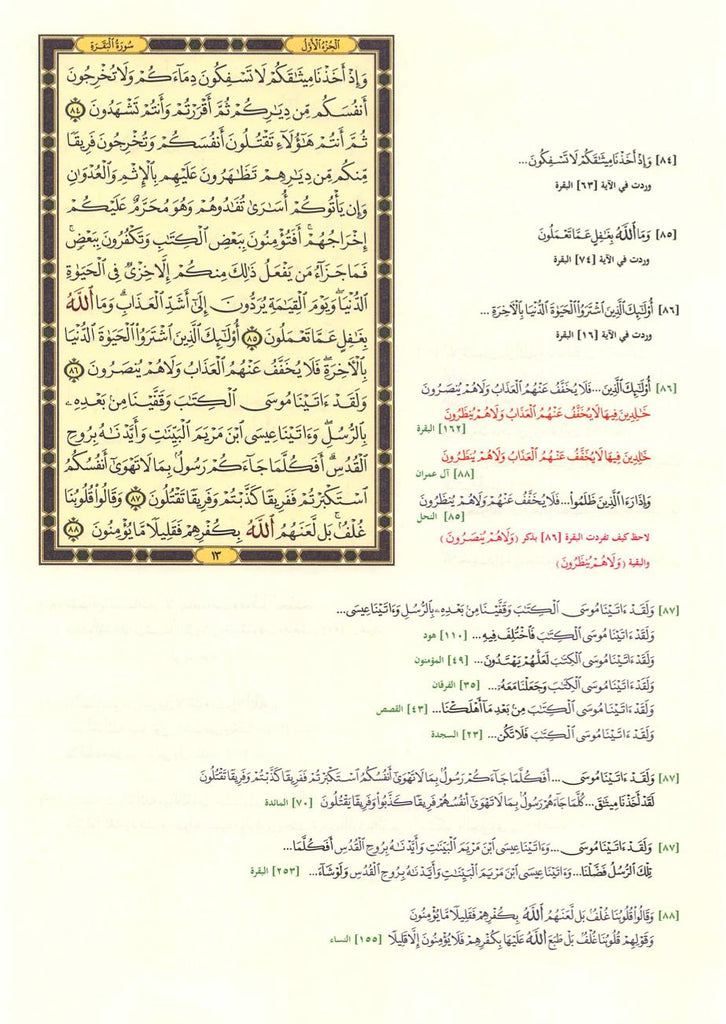 الجزء الأول
سورة البقرة
وَإِذْ أَخَذْنَا مِيثَٰقَكُمْ لَا تَسْفِكُونَ دِمَآءَكُمْ وَلَا تُخْرِجُونَ
أَنفُسَكُم مِّن دِيَٰرِكُمْ ثُمَّ أَقْرَرْتُمْ وَأَنتُمْ تَشْهَدُونَ ٨٤
ثُمَّ أَنتُمْ هَٰٓؤُلَآءِ تَقْتُلُونَ أَنفُسَكُمْ وَتُخْرِجُونَ فَرِيقًا
مِّنكُم مِّن دِيَٰرِهِمْ تَظَٰهَرُونَ عَلَيْهِم بِٱلْإِثْمِ وَٱلْعُدْوَٰنِ
وَإِن يَأْتُوكُمْ أُسَٰرَىٰ تُفَٰدُوهُمْ وَهُوَ مُحَرَّمٌ عَلَيْكُمْ
إِخْرَاجُهُمْ ۚ أَفَتُؤْمِنُونَ بِبَعْضِ ٱلْكِتَٰبِ وَتَكْفُرُونَ بِبَعْضٍ ۚ
فَمَا جَزَآءُ مَن يَفْعَلُ ذَٰلِكَ مِنكُمْ إِلَّا خِزْىٌ فِى ٱلْحَيَوٰةِ
ٱلدُّنْيَا ۖ وَيَوْمَ ٱلْقِيَٰمَةِ يُرَدُّونَ إِلَىٰٓ أَشَدِّ ٱلْعَذَابِ ۗ وَمَا ٱللَّهُ
بِغَٰفِلٍ عَمَّا تَعْمَلُونَ ٨٥ أُو۟لَٰٓئِكَ ٱلَّذِينَ ٱشْتَرَوُا۟ ٱلْحَيَوٰةَ ٱلدُّنْيَا
بِٱلْءَاخِرَةِ ۖ فَلَا يُخَفَّفُ عَنْهُمُ ٱلْعَذَابُ وَلَا هُمْ يُنصَرُونَ ٨٦
وَلَقَدْ ءَاتَيْنَا مُوسَى ٱلْكِتَٰبَ وَقَفَّيْنَا مِنۢ بَعْدِهِۦ
بِٱلرُّسُلِ ۖ وَءَاتَيْنَا عِيسَى ٱبْنَ مَرْيَمَ ٱلْبَيِّنَٰتِ وَأَيَّدْنَٰهُ بِرُوحِ
ٱلْقُدُسِ ۗ أَفَكُلَّمَا جَآءَكُمْ رَسُولٌۢ بِمَا لَا تَهْوَىٰٓ أَنفُسُكُمُ
ٱسْتَكْبَرْتُمْ فَفَرِيقًا كَذَّبْتُمْ وَفَرِيقًا تَقْتُلُونَ ٨٧ وَقَالُوا۟ قُلُوبُنَا
غُلْفٌۢ ۚ بَل لَّعَنَهُمُ ٱللَّهُ بِكُفْرِهِمْ فَقَلِيلًا مَّا يُؤْمِنُونَ ٨٨
١٣
[٨٤] وَإِذْ أَخَذْنَا مِيثَٰقَكُمْ لَا تَسْفِكُونَ...
وردت في الآية [٦٣] البقرة
[٨٥] وَمَا ٱللَّهُ بِغَٰفِلٍ عَمَّا تَعْمَلُونَ
وردت في الآية [٧٤] البقرة
[٨٦] أُو۟لَٰٓئِكَ ٱلَّذِينَ ٱشْتَرَوُا۟ ٱلْحَيَوٰةَ ٱلدُّنْيَا بِٱلْءَاخِرَةِ...
وردت في الآية [١٦] البقرة
[٨٦] أُو۟لَٰٓئِكَ ٱلَّذِينَ... فَلَا يُخَفَّفُ عَنْهُمُ ٱلْعَذَابُ وَلَا هُمْ يُنصَرُونَ
خَٰلِدِينَ فِيهَا لَا يُخَفَّفُ عَنْهُمُ ٱلْعَذَابُ وَلَا هُمْ يُنظَرُونَ
[١٦٢] البقرة
خَٰلِدِينَ فِيهَا لَا يُخَفَّفُ عَنْهُمُ ٱلْعَذَابُ وَلَا هُمْ يُنظَرُونَ
[٨٨] آل عمران
وَإِذَا رَءَا ٱلَّذِينَ ظَلَمُوا۟... فَلَا يُخَفَّفُ عَنْهُمْ وَلَا هُمْ يُنظَرُونَ
[٨٥] النحل
لاحظ كيف تفردت البقرة [٨٦] بذكر (وَلَا هُمْ يُنصَرُونَ)
والبقية (وَلَا هُمْ يُنظَرُونَ)
[٨٧] وَلَقَدْ ءَاتَيْنَا مُوسَى ٱلْكِتَٰبَ وَقَفَّيْنَا مِنۢ بَعْدِهِۦ بِٱلرُّسُلِ وَءَاتَيْنَا عِيسَى...
وَلَقَدْ ءَاتَيْنَا مُوسَى ٱلْكِتَٰبَ فَٱخْتُلِفَ فِيهِ... [١١٠] هود
وَلَقَدْ ءَاتَيْنَا مُوسَى ٱلْكِتَٰبَ لَعَلَّهُمْ يَهْتَدُونَ... [٤٩] المؤمنون
وَلَقَدْ ءَاتَيْنَا مُوسَى ٱلْكِتَٰبَ وَجَعَلْنَا مَعَهُۥٓ... [٣٥] الفرقان
وَلَقَدْ ءَاتَيْنَا مُوسَى ٱلْكِتَٰبَ مِنۢ بَعْدِ مَآ أَهْلَكْنَا... [٤٣] القصص
وَلَقَدْ ءَاتَيْنَا مُوسَى ٱلْكِتَٰبَ فَلَا تَكُن... [٢٣] السجدة
[٨٧] وَلَقَدْ ءَاتَيْنَا مُوسَى... أَفَكُلَّمَا جَآءَكُمْ رَسُولٌۢ بِمَا لَا تَهْوَىٰٓ أَنفُسُكُمُ ٱسْتَكْبَرْتُمْ فَفَرِيقًا كَذَّبْتُمْ وَفَرِيقًا تَقْتُلُونَ
لَقَدْ أَخَذْنَا مِيثَٰقَ... كُلَّمَا جَآءَهُمْ رَسُولٌۢ بِمَا لَا تَهْوَىٰٓ أَنفُسُهُمْ فَرِيقًا كَذَّبُوا۟ وَفَرِيقًا يَقْتُلُونَ [٧٠] المائدة
[٨٧] وَلَقَدْ ءَاتَيْنَا مُوسَى... وَءَاتَيْنَا عِيسَى ٱبْنَ مَرْيَمَ ٱلْبَيِّنَٰتِ وَأَيَّدْنَٰهُ بِرُوحِ ٱلْقُدُسِ أَفَكُلَّمَا...
تِلْكَ ٱلرُّسُلُ فَضَّلْنَا... وَءَاتَيْنَا عِيسَى ٱبْنَ مَرْيَمَ ٱلْبَيِّنَٰتِ وَأَيَّدْنَٰهُ بِرُوحِ ٱلْقُدُسِ وَلَوْ شَآءَ... [٢٥٣] البقرة
[٨٨] وَقَالُوا۟ قُلُوبُنَا غُلْفٌۢ بَل لَّعَنَهُمُ ٱللَّهُ بِكُفْرِهِمْ فَقَلِيلًا مَّا يُؤْمِنُونَ
وَقَوْلِهِمْ قُلُوبُنَا غُلْفٌۢ بَلْ طَبَعَ ٱللَّهُ عَلَيْهَا بِكُفْرِهِمْ فَلَا يُؤْمِنُونَ إِلَّا قَلِيلًا [١٥٥] النساء